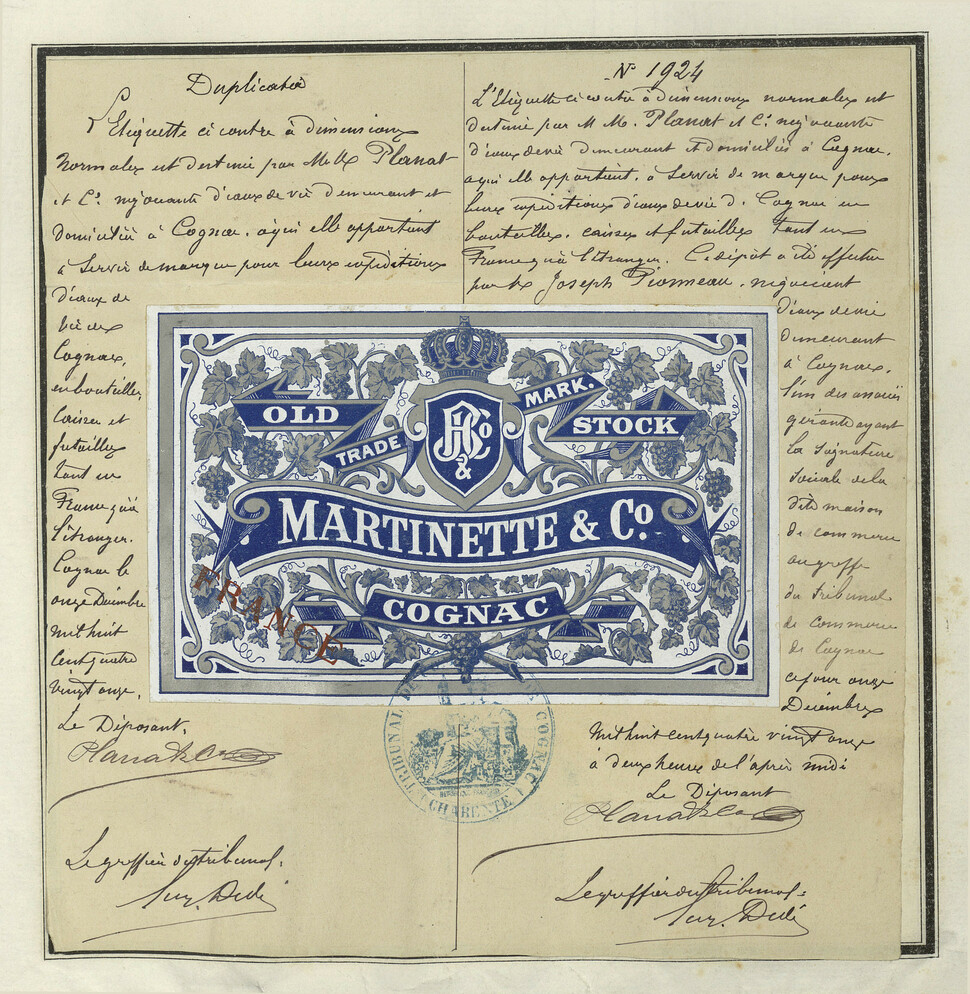 Duplicata
L'Etiquette ci contre à dimensions
normales est destinée par MM Planat
et Cie négociants d'eaux de vie demeurant et
domiciliés à Cognac, à qui elle appartient
à servir de marque pour leurs expéditions
d'eaux de
vie de
Cognac,
en bouteilles,
caisses et
futailles
tant en
France qu'à
l'étranger.
Cognac le
onze Décembre
mil huit
cent quatre
vingt onze,
Le Déposant,
Planat & Co
Le greffier du tribunal.
No 1924
L'Etiquette ci contre à dimensions normales est
destinée par M M. Planat et Cie négociants
d'eaux de vie demeurant et domiciliés à Cognac,
à qui elle appartient, à servir de marque pour
leurs expéditions d'eaux de vie de Cognac en
bouteilles, caisses et futailles tant en
France qu'à l'étranger. Ce dépôt a été effectué
par Joseph négociant
d'eaux de vie
demeurant
à Cognac,
l'un des associés
gérants ayant
la signature
sociale de la
dite maison
de commerce
au greffe
du Tribunal
de Commerce
de Cognac
ce jour onze
Décembre
mil huit cent quatre vingt onze
à deux heures de l'après midi
Le Déposant
Planat & Co
Le greffier du tribunal.
OLD
TRADE
MARK.
STOCK
PC & Co
MARTINETTE & Co.
COGNAC
FRANCE
TRIBUNAL DE COGNAC
(CHARENTE)